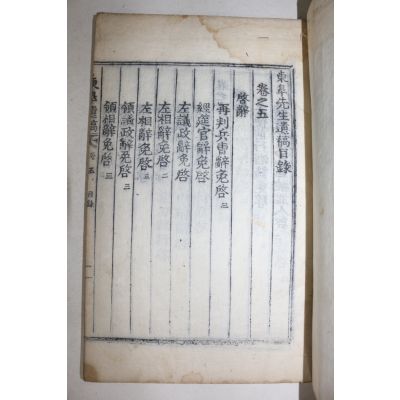 東皐先生遺稿目錄
卷之五
啓辭
再判兵曹辭免啓 二
經筵官辭免啓
左議政辭免啓
左相辭免啓 二
左相辭免啓 三
領議政辭免啓 二
領相辭免啓 三
東皐遺稿 卷五 目錄 一